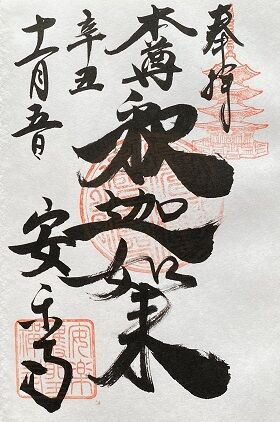 奉拝
本尊
釈迦如来
辛丑
十二月五日
安楽寺